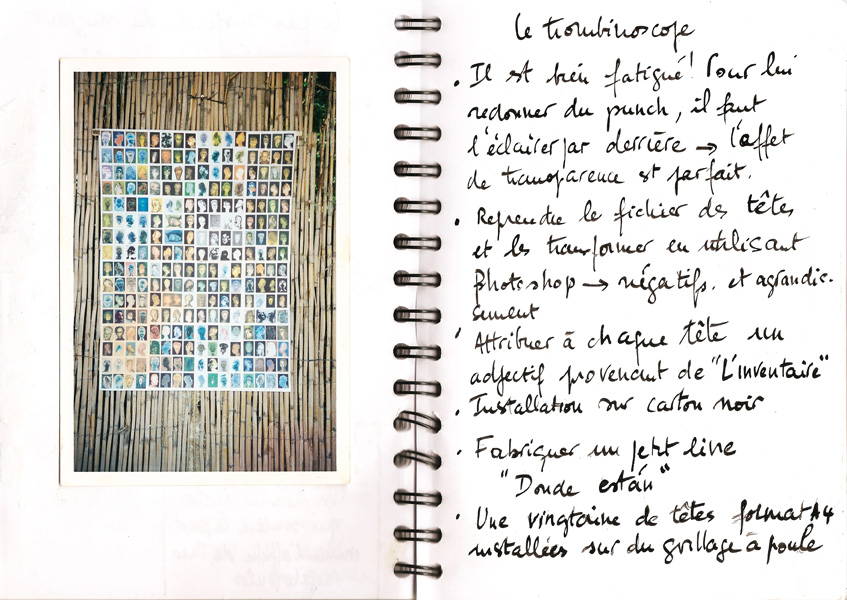 Le trombinoscope
. Il est bien fatigué! Pour lui
redonner du punch, il faut
l'éclairer par derrière → l'effet
de transparence est parfait.
. Reprendre le fichier des têtes
et les transformer en utilisant
Photoshop → négatifs. et agrandis-
sement
' Attribuer à chaque tête un
adjectif provenant de "L'inventaire"
. Installation sur carton noir
. Fabriquer un petit livre
"Donde están"
. Une vingtaine de têtes format A4
installées sur du grillage à poule